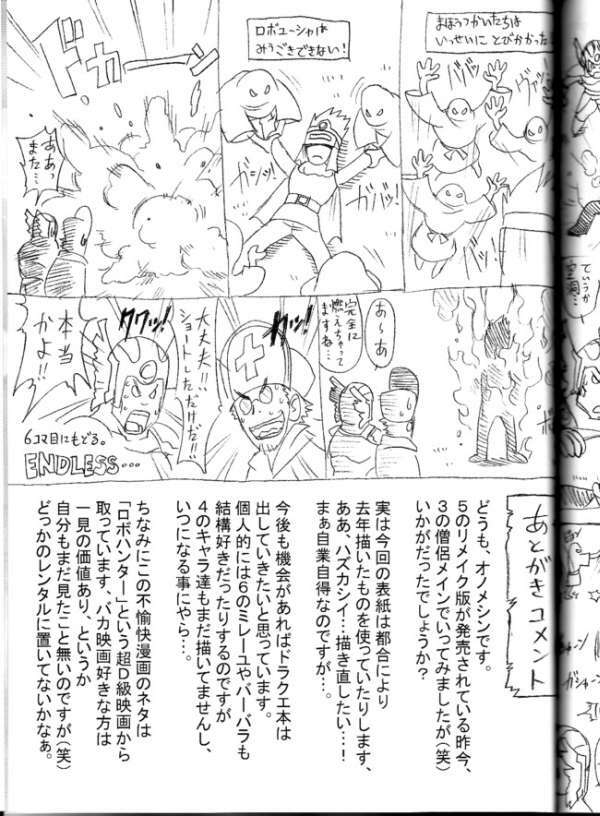 まほうつかいたちは
いっせいに とびかかった!
ロボユーシャは
みうごきできない!
ガバッ!
ガシッ!
ガシッ!
ドカーン
ああっ
また…
あ〜あ
完全に
燃えちゃって
ますね…
大丈夫!!
ショートしただけだ!!
クワッ!
クワッ!
本当
かよ!!
6コマ目にもどる。
ENDLESS…
ていうか
あとがきコメント
どうも、オノメシンです。
5のリメイク版が発売されている昨今、
3の僧侶メインでいってみましたが(笑)
いかがだったでしょうか?
実は今回の表紙は都合により
去年描いたものを使っていたりします、
ああ、ハズカシイ…描き直したい…!
まぁ自業自得なのですが…。
今後も機会があればドラクエ本は
出していきたいと思っています。
個人的には6のミレーユやバーバラも
結構好きだったりするのですが
4のキャラ達もまだ描いてませんし、
いつになる事にやら…。
ちなみにこの不愉快漫画のネタは
「ロボハンター」という超D級映画から
取っています、バカ映画好きな方は
一見の価値あり、というか
自分もまだ見たこと無いのですが(笑)
どっかのレンタルに置いてないかなぁ。